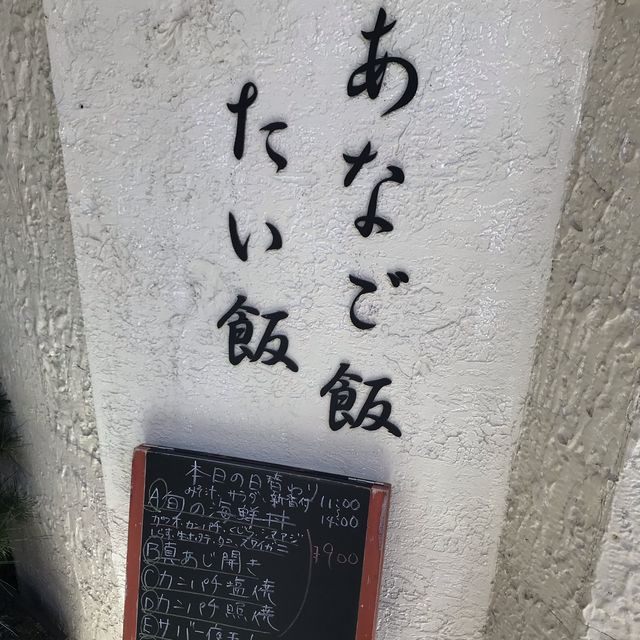 あなご飯
たい飯
本日の日替わり
みそ汁、サラダ、新香付
11:00
14:00
Ⓐ旬の海鮮丼
カツオ カンパチ
生ホタテ
¥900
Ⓑ真あじ開き
Ⓒカンパチ塩焼
Ⓓカンパチ照焼
Ⓔサバ